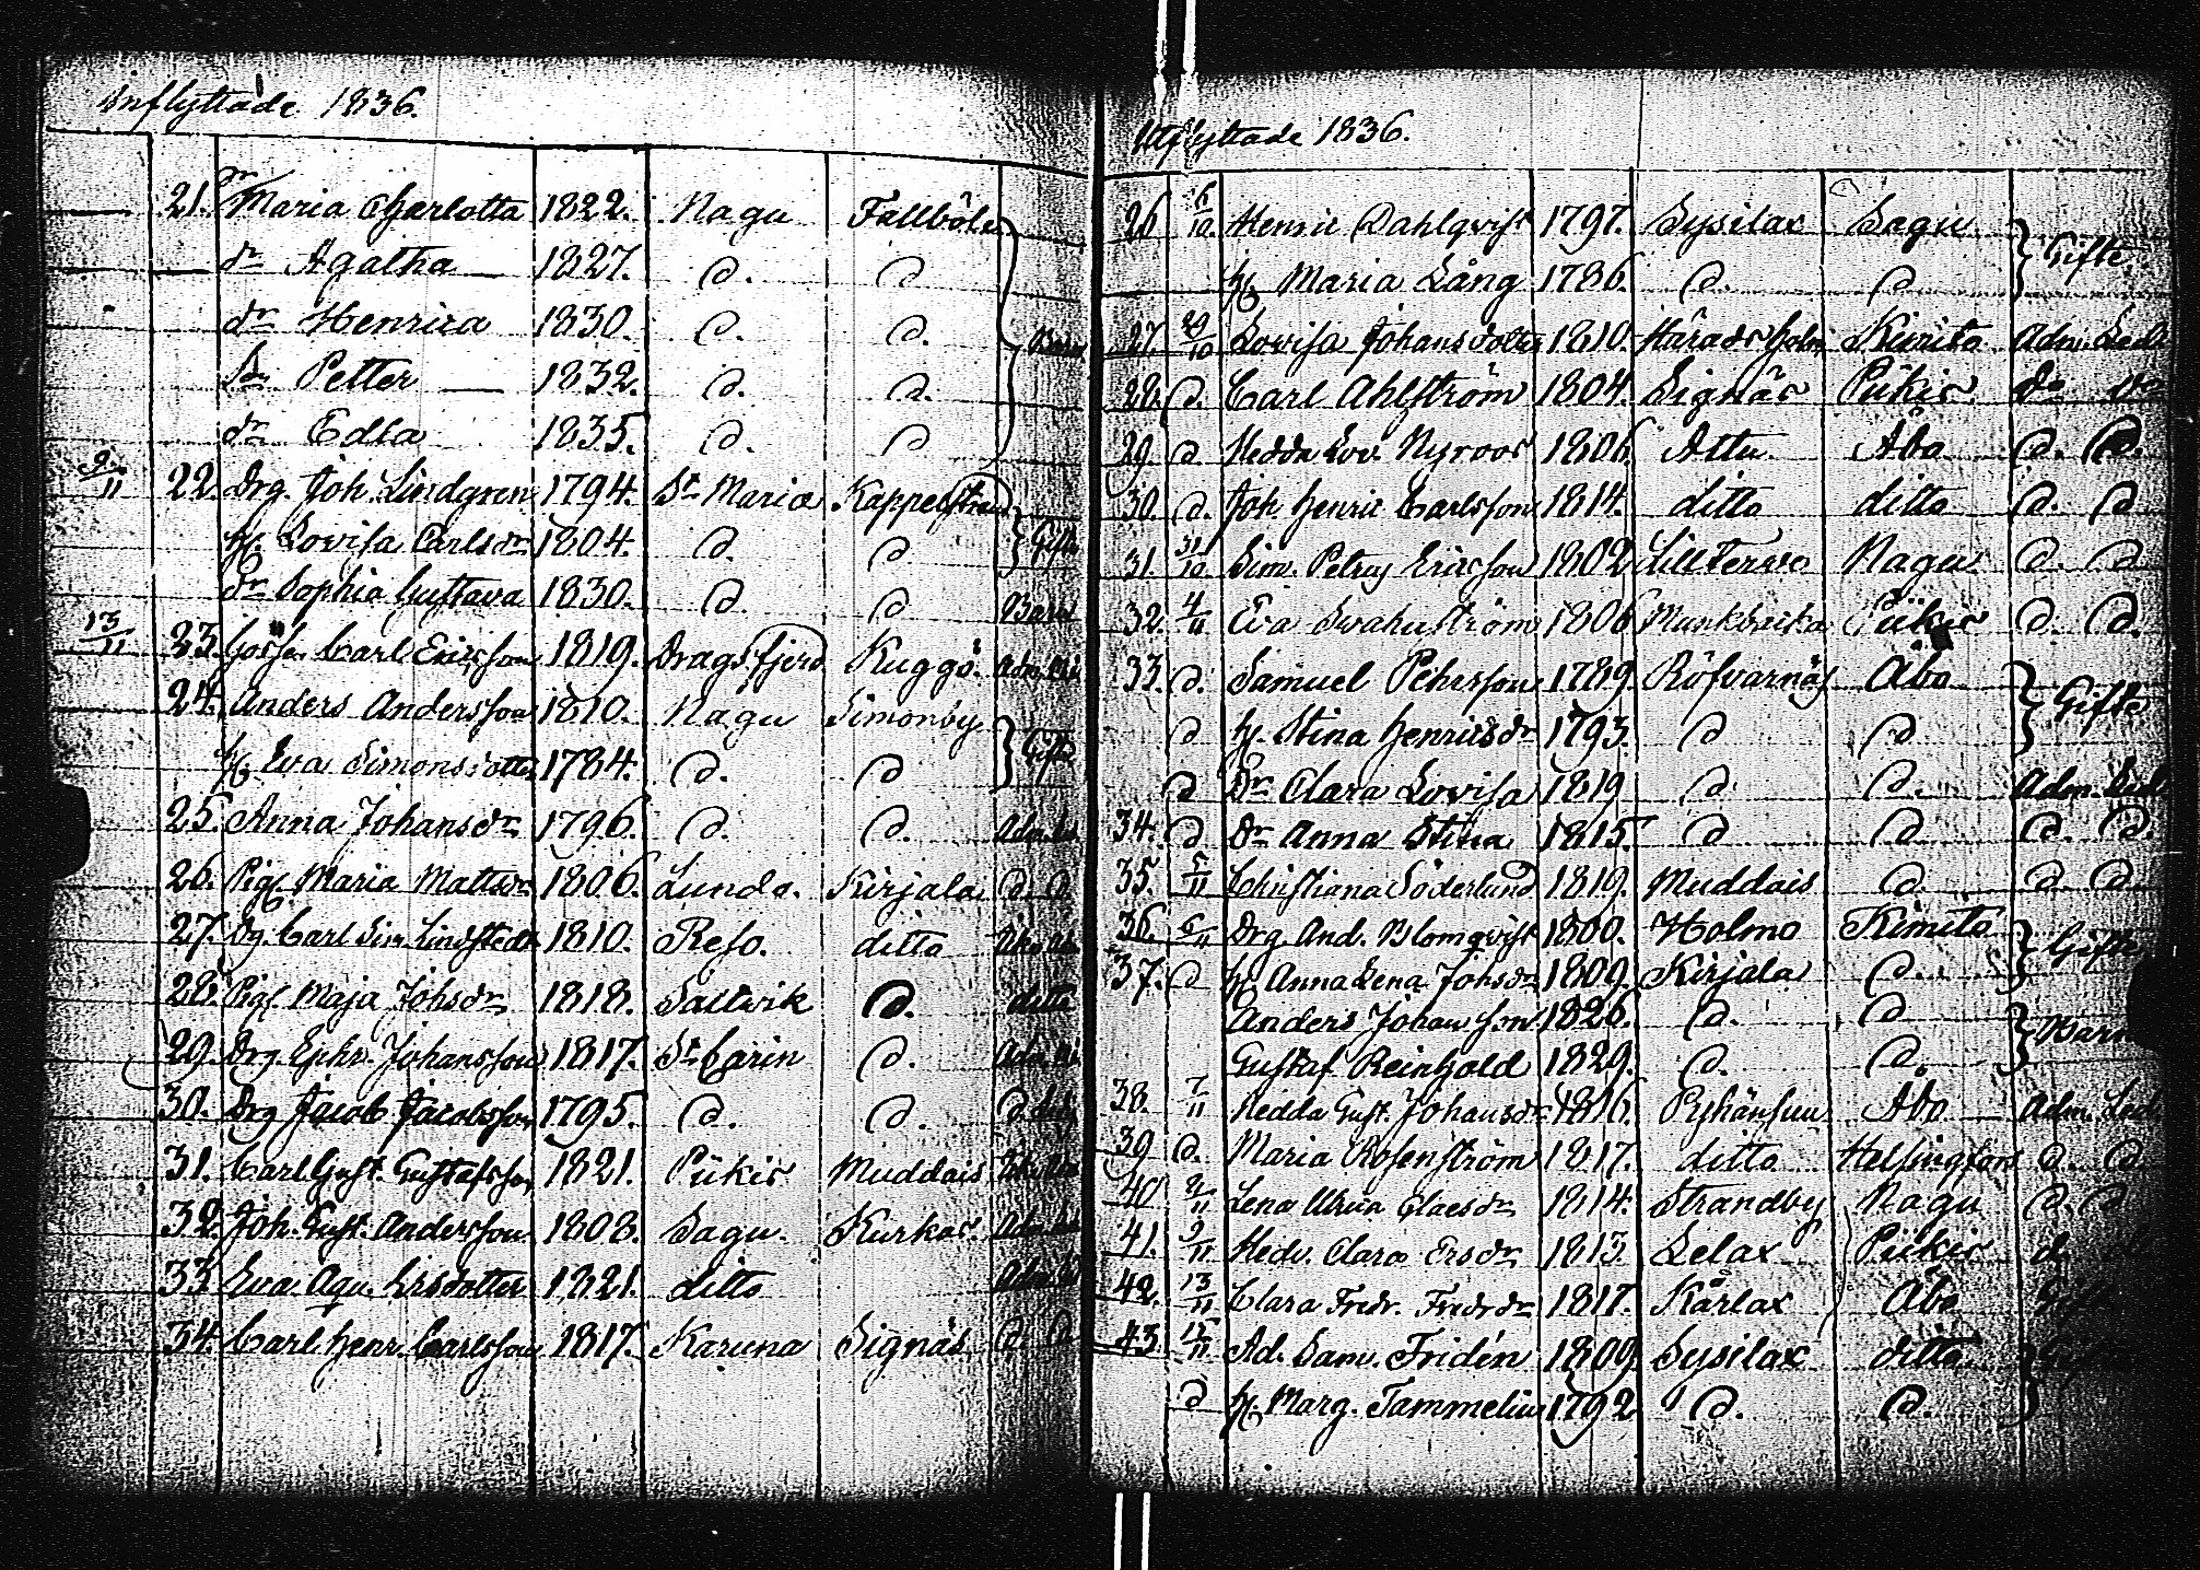 Inflyttade 1836.
21. Dr Maria Charlotta 1822. Nagu Fallböle
dr Agatha 1827. d. d
dr Henrica 1830. d. d. Barn
Sn Petter 1832. d. d.
dr Edla 1835. d. d
9/11 22. Drg. Joh. Lindgren 1794. St Mariæ Kappelstrand
h. Lovisa Carlsdr 1804. d. d Gifte
Dr Sophia Gustava 1830. d d Barn
13/11 23. Goss. Carl Ericsson 1819. Dragsfjerd Kuggö.
24. Anders Andersson 1810. Nagu Simonby
h. Eva Simonsdotter 1784. d. d Gifte
25. Anna Johansdr 1796. d. d.
26. Pig. Maria Mattsdr 1806. Lundo. Kirjala d. d.
27. Dg. Carl Sim. Lindstedt 1810. Reso. ditto
28. Pig. Maja Johsdr 1818. Saltvik d. ditto
29. Drg. Ephr. Johansson 1817. St Carin d.
30. Drg Jacob Jacobsson 1795. d. d.
31. Carl Gust. Gustafsson 1821. Pükis Muddais
32. Joh. Gust. Andersson 1808. Sagu. Kurkas.
33 Eva Agu. Ersdotter 1821. ditto
34. Carl Henr. Carlsson 1817. Karuna Signäs d. d.
Utflyttade 1836.
26 6/10. Henric Dahlqvist 1797. Sysilax Sagu
h. Maria Lång 1786. d. d Gifte
27. 29/10 Lovisa Johansdotter 1810. Häradsholm Kimito Adm. Led.
28. d. Carl Ahlström 1804. Signäs Pükis do do
29. d. Hedda Lov. Nyroos 1806. Attu Åbo d. d.
30. d. Joh. Henric Carlsson 1814. ditto ditto d. d
31. 31/10. Sim. Petrus Ericsson 1802 Lilltervo Nagu d. d
32. 4/11 Eva Swahnström 1806 Munkbacka Pükis d. d.
33. d. Samuel Pehrsson 1789. Röfvarnäs Åbo
d h. Stina Henricsdr 1793. d d Gifte
d Dr Clara Lovisa 1819 d d. Adm. Led
34. d dr Anna Stina 1815. d d d. d.
35. 5/11 Christiana Söderlund 1819. Muddais d. d. d.
36. 6/11 Drg. And. Blomqvist 1800. Holmo Kimito
37. d h. Anna Lena Johsdr 1809. Kirjala d. Gifte
Anders Johansson 1826. d. d
Gustaf Reinhold 1829. d. d. Barn
38. 7/11 Hedda Gust. Johansdr 1816. Pyhänsuu Åbo Adm. Led.
39 d. Maria Rosenström 1817. ditto Helsingfors d. d
40 8/11 Lena Ulrica Claesdr 1814. Strandby Nagu d. d
41. 9/11 Hedv. Clara Ersdr 1813. Lelax Pükis d.
42. 13/11 Clara Fredr. Fredrdr 1817. Kärlax Åbo
43. 15/11 Ad. Sam. Fridén 1809 Sysilax ditto
d h. Marg. Tammelin 1792 d. d.